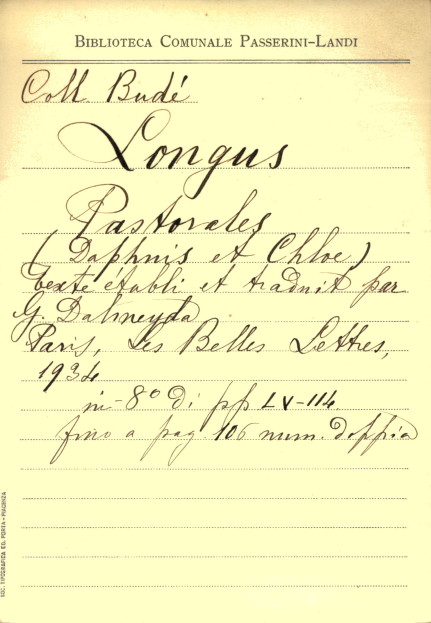 BIBLIOTECA COMUNALE PASSERINI-LANDI
Coll. Budé
Longus
Pastorales
(Daphnis et Chloe)
texte établi et traduit par
G. Dalmeyda
Paris, Les Belles Lettres,
1934
in-8° di pp LV-114.
fino a pag. 106 num. doppia
SOC. TIPOGRAFICA ED. PORTA - PIACENZA